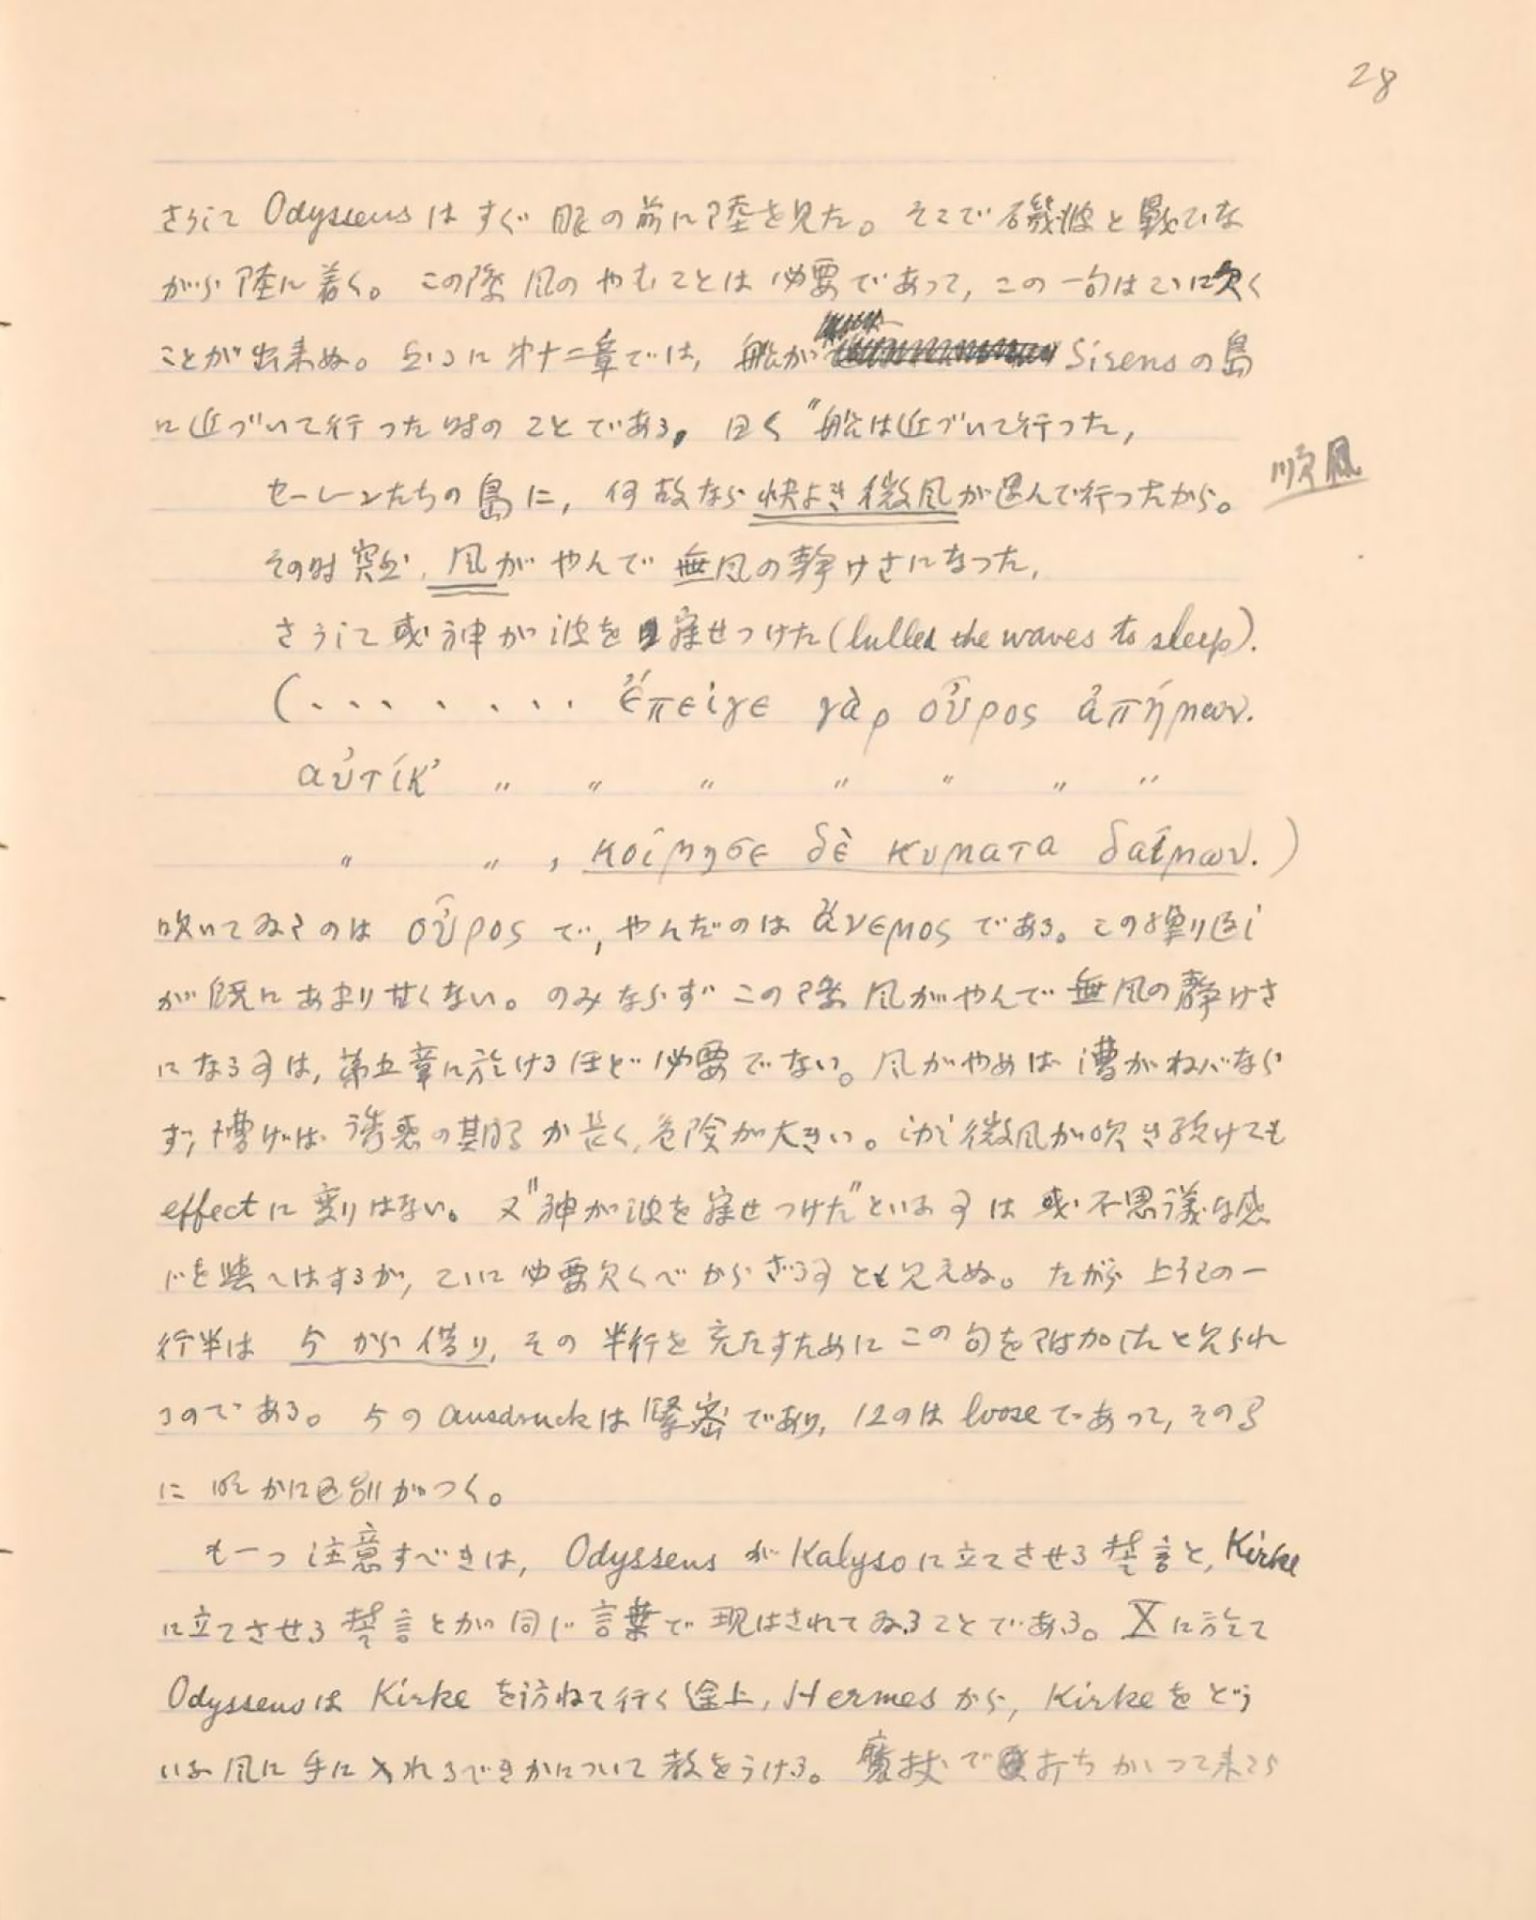 28
さうして Odysseus はすぐ眼の前に陸を見た。そこで磯波と戰ひな
がら陸に着く。この際風のやむことは必要であって, この一句はここに欠く
ことが出来ぬ。然るに第十二章では, 船が Sirens の島
に近づいて行った時のことである, 曰く "船は近づいて行った,
セーレンたちの島に, 何故なら快よき微風が運んで行ったから。
順風
その時突然, 風がやんで無風の静けさになった,
さうして或神が波を寝せつけた (lulled the waves to sleep).
(. . . . . . . ἔπειγε γὰρ οὖρος ἀπήμων.
αὐτίκ' 〃 〃 〃 〃 〃 〃 〃
〃 〃 , κοίμησε δὲ κυματα δαίμων.)
吹いてゐるのは οὖρος で, やんだのは ἄνεμος である。この繰り返し
が既にあまり甘くない。のみならずこの際風がやんで無風の静けさ
になる事は, 第五章に於けるほど必要でない。風がやめば漕がねばなら
ず, 漕げば誘惑の期間が長く, 危険が大きい。しかし微風が吹き続けても
effect に変りはない。又 "神が波を寝せつけた" といふ事は或不思議な感
じを與へはするが, ここに必要欠くべからざる事とも見えぬ。だから上記の一
行半は 5 から借り, その半行を充たすためにこの句を附加したと见られ
るのである。5 の Ausdruck は緊密であり, 12のは loose であって, その間
に明かに区別がつく。
も一つ注意すべきは, Odysseus が Kalypso に立てさせる誓言と, Kirke
に立てさせる誓言とが同じ言葉で現はされてゐることである。X に於て
Odysseus は Kirke を訪ねて行く途上, Hermes から, Kirke をどう
いふ風に手に入れるべきかについて教をうける。魔杖で打ちかかって来たら